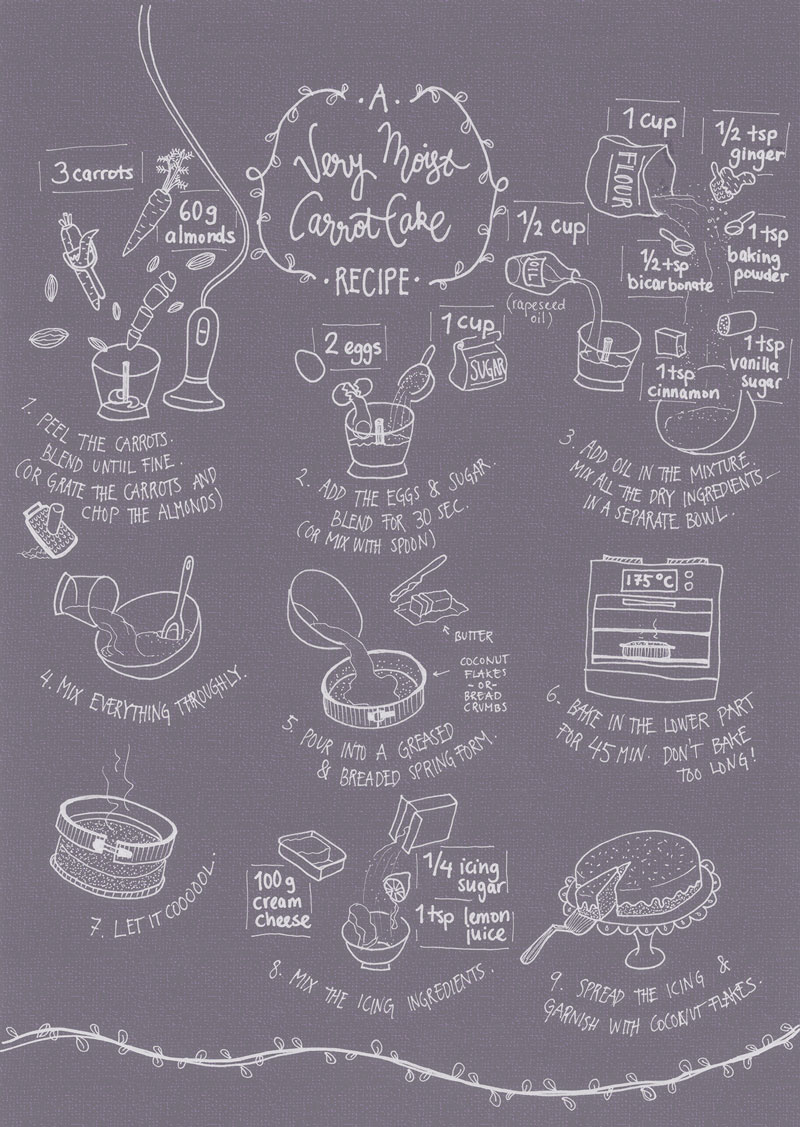 · A ·
Very Moist
Carrot Cake
· RECIPE ·
3 carrots
60g
almonds
1. PEEL THE CARROTS.
BLEND UNTIIL FINE.
(OR GRATE THE CARROTS AND
CHOP THE ALMONDS)
2 eggs
1 cup
SUGAR
2. ADD THE EGGS & SUGAR.
BLEND FOR 30 SEC.
(OR MIX WITH SPOON)
1/2 cup
OIL
(rapeseed
oil)
1 cup
FLOUR
1/2 tsp
ginger
1/2 tsp
bicarbonate
1 tsp
baking
powder
1 tsp
cinnamon
1 tsp
vanilla
sugar
3. ADD OIL IN THE MIXTURE.
MIX ALL THE DRY INGREDIENTS
IN A SEPARATE BOWL.
4. MIX EVERYTHING THROUGHLY.
BUTTER
COCONUT
FLAKES
-OR-
BREAD
CRUMBS
5. POUR INTO A GREASED
& BREADED SPRINGFORM.
175°C
6. BAKE IN THE LOWER PART
FOR 45 MIN. DON'T BAKE
TOO LONG!
7. LET IT COOOOOL.
100g
cream
cheese
1/4 icing
sugar
1 tsp lemon
juice
8. MIX THE ICING INGREDIENTS.
9. SPREAD THE ICING &
GARNISH WITH COCONUT FLAKES.